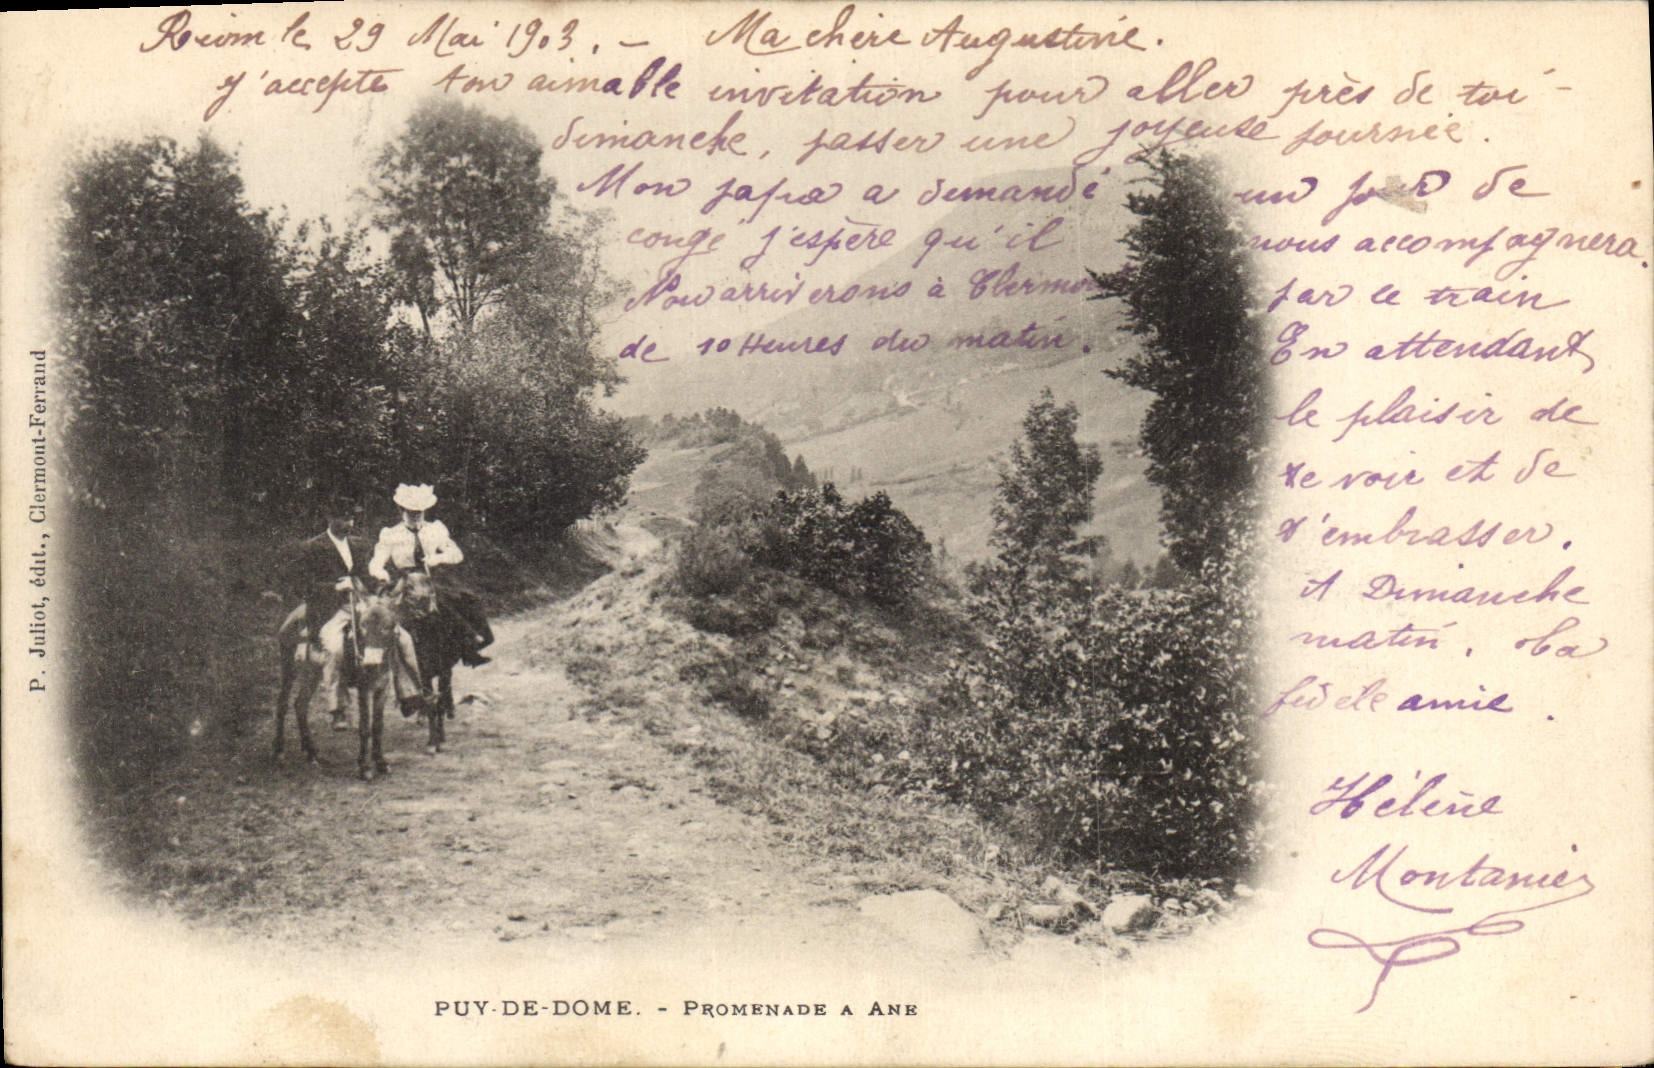 Riom le 29 Mai 1903. - Ma chère Augustine.
J'accepte ton aimable invitation pour aller près de toi -
dimanche, passer une joyeuse journée.
Mon papa a demandé un jour de
congé j'espère qu'il nous accompagnera.
Nous arriverons à Clermont par le train
de 10 Heures du matin. En attendant
le plaisir de
te voir et de
t'embrasser.
A Dimanche
matin. Ta
fidèle amie.
Hélène
Montanier
P. Juliot, édit., Clermont-Ferrand
PUY-DE-DOME. - PROMENADE A ANE